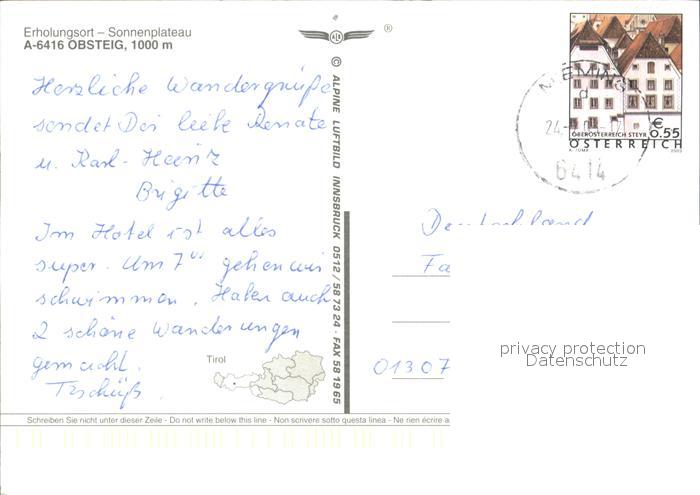 Erholungsort – Sonnenplateau
A-6416 OBSTEIG, 1000 m
®
Herzliche Wandergrüße
sendet Dir liebe Renate
u. Karl-Heinz
Brigitte
Im Hotel ist alles
super. Um 7 gehen wir
schwimmen. Haben auch
2 schöne Wanderungen
gemacht.
Tschüß.
Tirol
© ALPINE LUFTBILD INNSBRUCK 0512/58 73 24 · FAX 58 19 65
MIEMING
d
24.
6414
€
0.55
OBERÖSTERREICH STEYR
A. TUMA 2003
ÖSTERREICH
Deutschland
Fa
01307
privacy protection
Datenschutz
Schreiben Sie nicht unter dieser Zeile - Do not write below this line - Non scrivere sotto questa linea - Ne rien écrire a